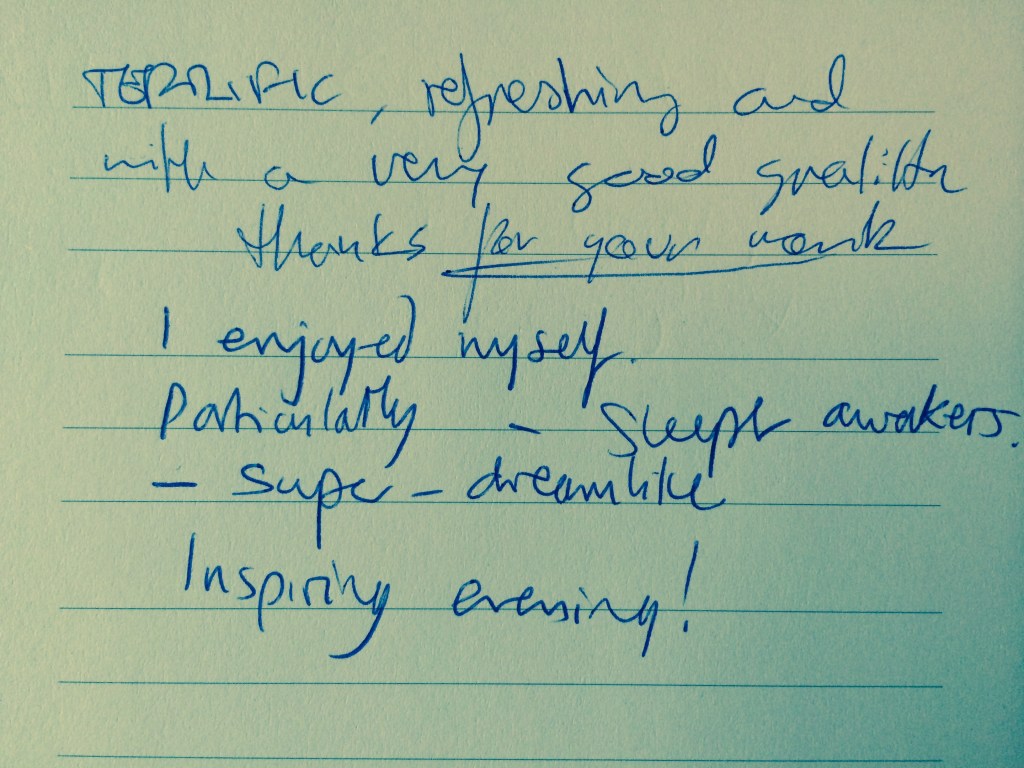 TERRIFIC, refreshing and
with a very good
thanks for your work
I enjoyed myself.
Particularly - awakers.
- Super - dreamlike
Inspiring evening!